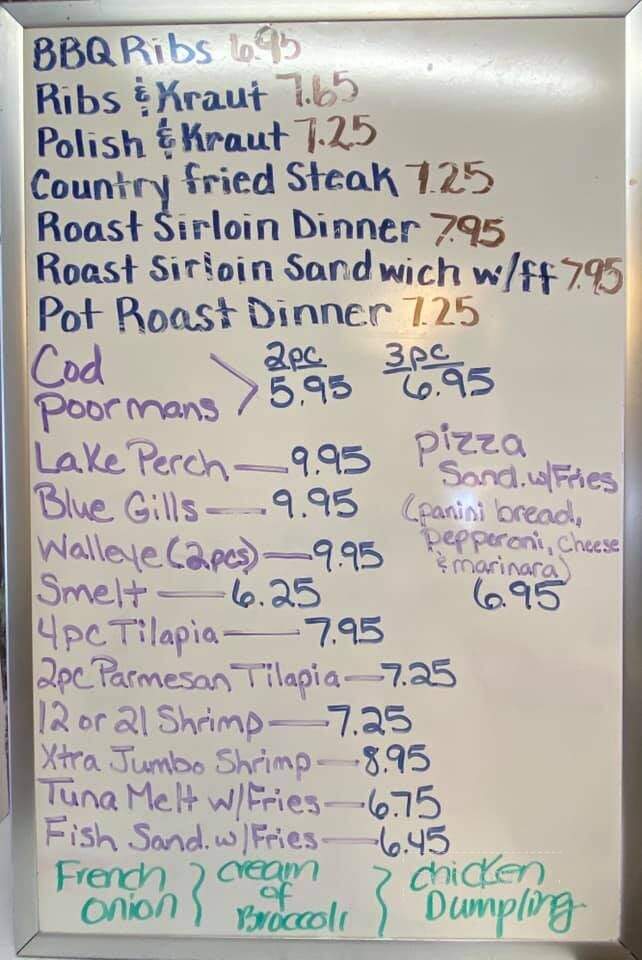 BBQ Ribs 6.95
Ribs & Kraut 7.65
Polish & Kraut 7.25
Country fried Steak 7.25
Roast Sirloin Dinner 7.95
Roast Sirloin Sandwich w/ff 7.95
Pot Roast Dinner 7.25
Cod
Poormans
2pc 3pc
5.95 6.95
Lake Perch — 9.95
Blue Gills — 9.95
Walleye (2pcs) — 9.95
Smelt — 6.25
4pc Tilapia — 7.95
2pc Parmesan Tilapia — 7.25
12 or 21 Shrimp — 7.25
Xtra Jumbo Shrimp — 8.95
Tuna Melt w/Fries — 6.75
Fish Sand. w/Fries — 6.45
pizza
Sand. w/Fries
(panini bread,
Pepperoni, Cheese
& marinara)
6.95
French
Onion
Cream
of
Broccoli
Chicken
Dumpling